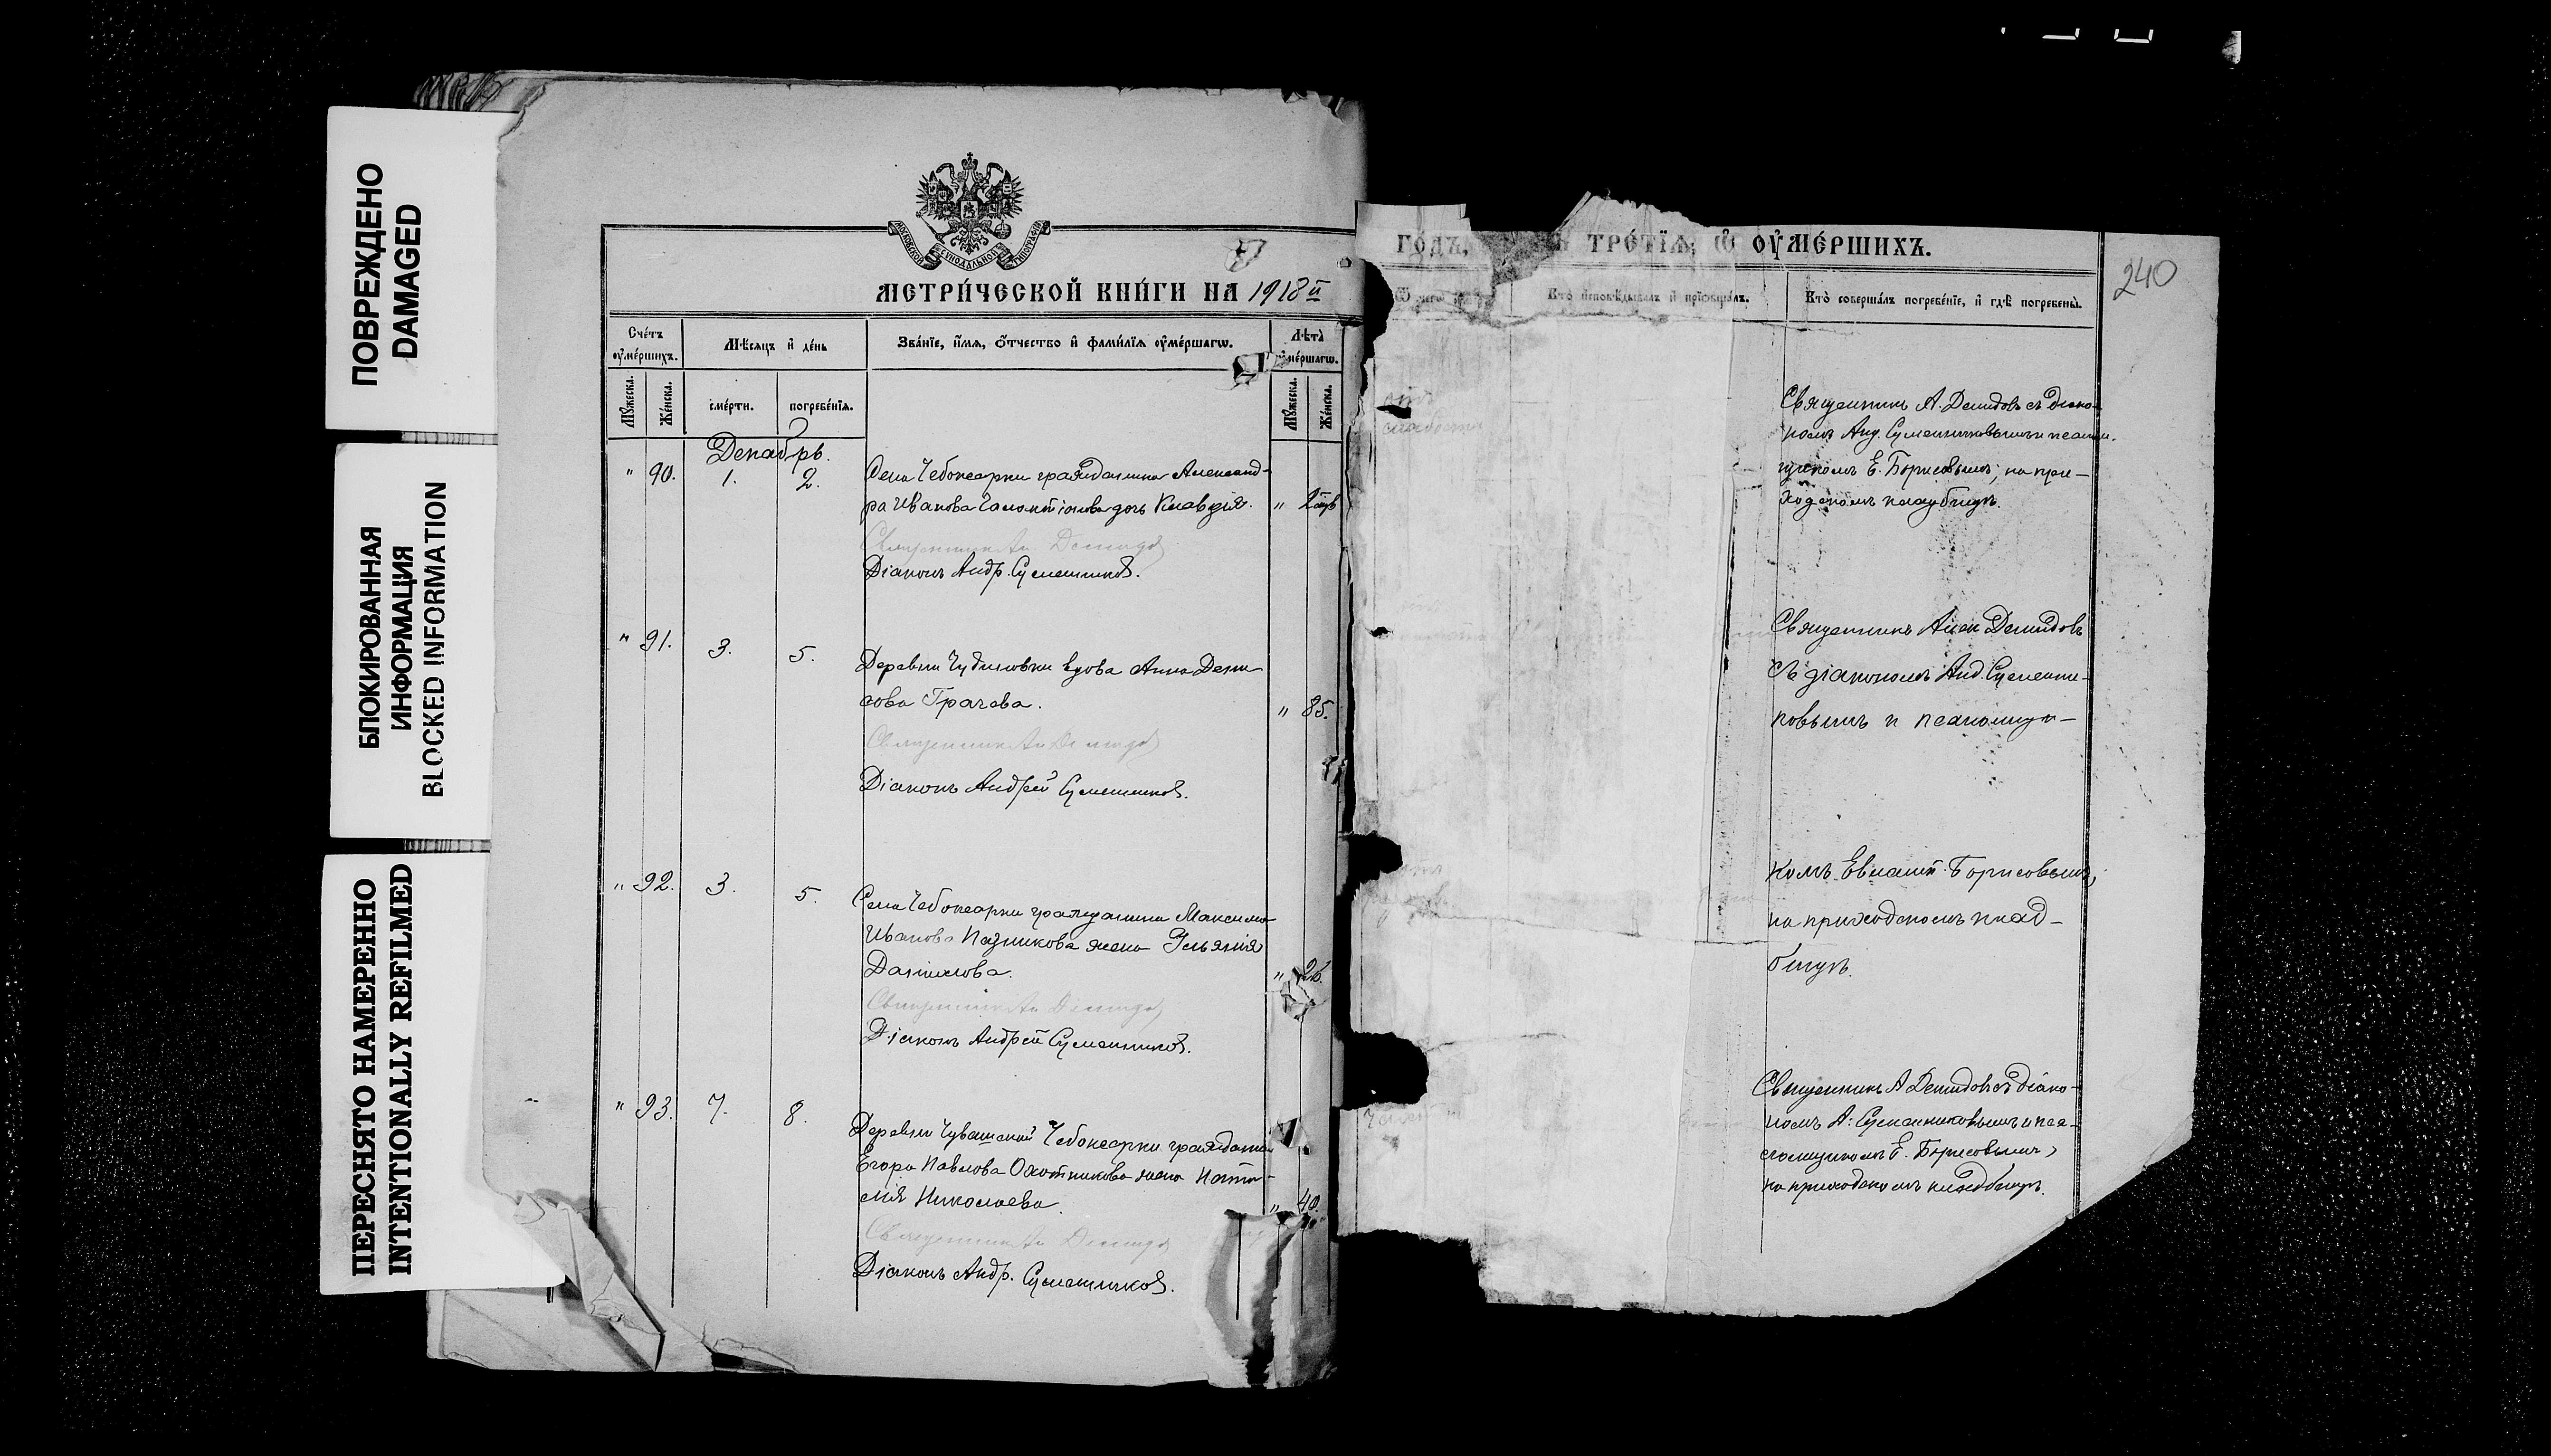 ПОВРЕЖДЕНО
DAMAGED
БЛОКИРОВАННАЯ
ИНФОРМАЦИЯ
BLOCKED INFORMATION
ПЕРЕСНЯТО НАМЕРЕННО
INTENTIONALLY REFILMED
МОСКОВСКОЙ СѴНОДАЛЬНОЙ ТИПОГРАФІИ
МЕТРИ́ЧЕСКОЙ КНИ́ГИ НА 1918й
Сче́тъ оу҆ме́ршихъ.
Мѣ́сяцъ и҆ де́нь
Зва́нїе, и҆́мя, ѻ҆́тчество и҆ фами́лїя оу҆ме́ршагѡ.
Лѣ́та оу҆ме́ршагѡ.
Мꙋ́жеска.
Же́нска.
сме́рти.
погребе́нїя.
Мꙋ́жеска.
Же́нска.
Декабрь.
" 90. 1. 2. Села Чебоксарки гражданина Александ-
ра Иванова дочь Клавдія. "
Священник Ал Демидов
Діаконъ Андр. Сумешников.
" 91. 3. 5. Деревни вдова Анна Дени-
сова Грачева. " 85.
Священник Ал Демидов
Діаконъ Андрей Сумешников.
" 92. 3. 5. Села Чебоксарки гражданина Максима
Иванова жена
Данилова. " 26.
Священник Ал Демидов
Діаконъ Андрей Сумешников.
" 93. 7. 8. Деревни Чувашской Чебоксарки гражданина
Егора Павлова Охотникова жена Ната-
лія Николаева. " 40.
Священник Ал Демидов
Діаконъ Андр. Сумешников.
ГО́ДЪ, ТРЕ́ТЇѦ, Ѡ҆ ОУ҆МЕ́РШИХЪ.
240
Кто̀ и҆сповѣ́дывалъ и҆ прїѡбща́лъ.
Кто̀ соверша́лъ погребе́нїе, и҆ гдѣ̀ погребены̀.
отъ
слабости
Священникъ А. Демидовъ съ діако-
номъ Анд. Сумешниковымъ и псалом-
щикомъ Е. Борисовымъ, на при-
ходскомъ кладбищѣ.
Священникъ Алек Демидовъ
съ діакономъ Анд. Сумешни-
ковымъ и псаломщи-
комъ Евламп. Борисовымъ,
на приходскомъ клад-
бищѣ.
Священникъ А Демидовъ съ діако-
номъ А. Сумешниковымъ и пса-
ломщикомъ Е. Борисовымъ,
на приходскомъ кладбищѣ.